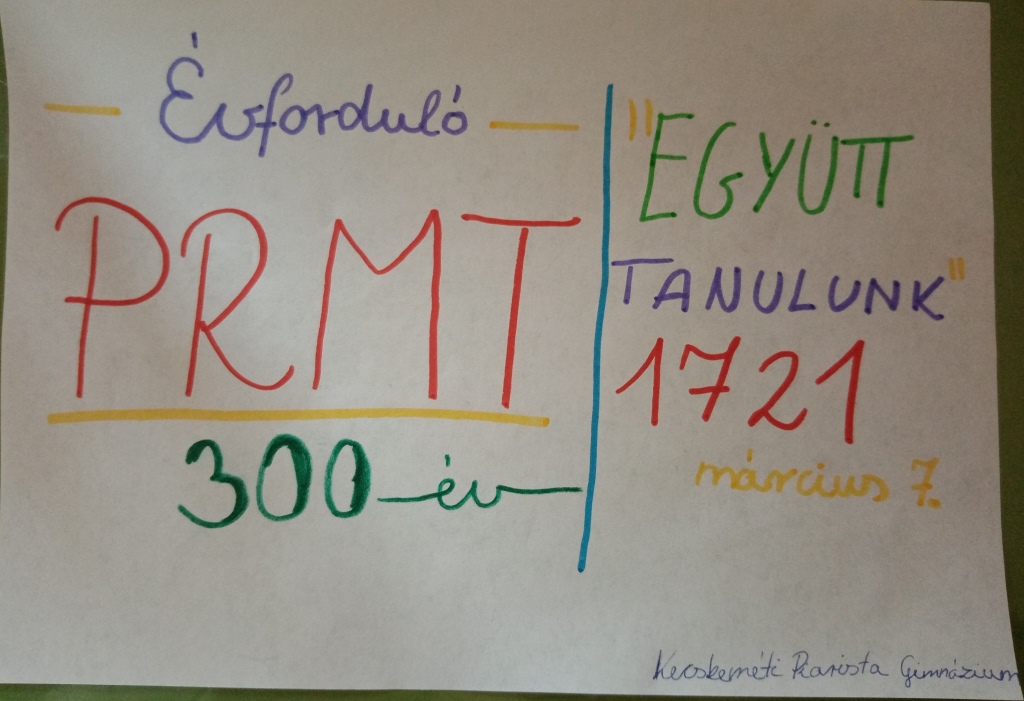 Évforduló
PRMT
300 év
"EGYÜTT
TANULUNK"
1721
március 7.
Kecskeméti Piarista Gimnázium